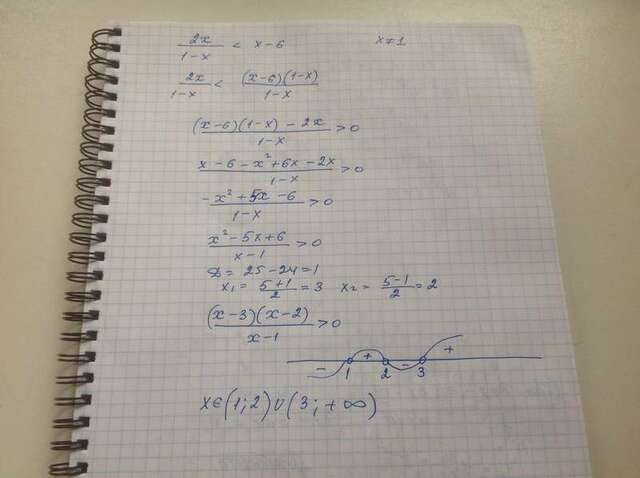 2x/(1-x) < x-6 x≠1
2x/(1-x) < (x-6)(1-x)/(1-x)
((x-6)(1-x)-2x)/(1-x) >0
(x-6-x²+6x-2x)/(1-x) >0
(-x²+5x-6)/(1-x) >0
(x²-5x+6)/(x-1) >0
D= 25-24=1
x₁= (5+1)/2 =3 x₂= (5-1)/2 =2
(x-3)(x-2)/(x-1) >0
- + - +
1 2 3
x∈(1;2)∪(3;+∞)